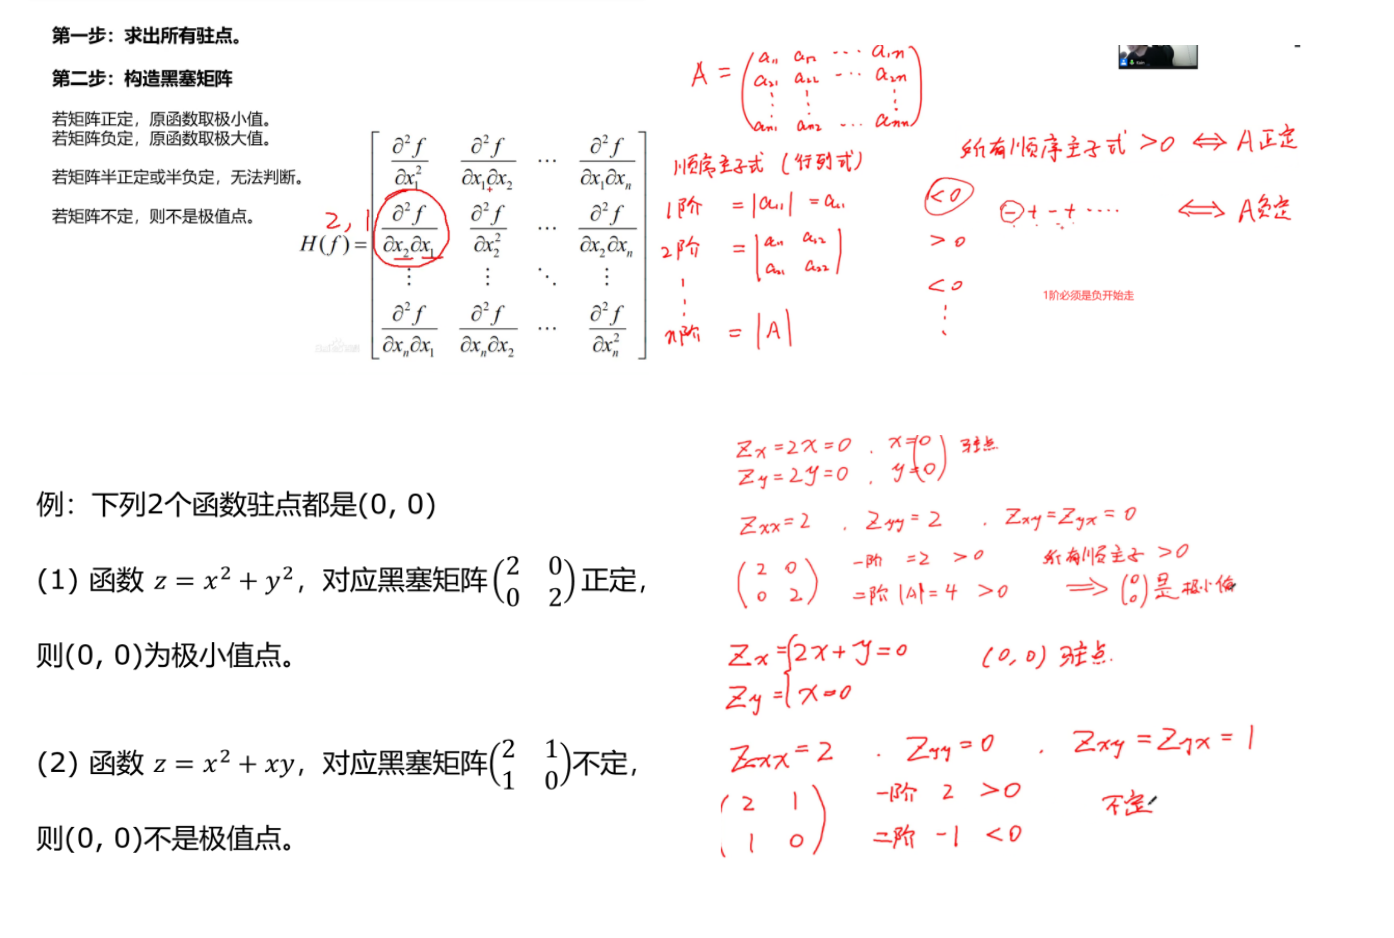 第一步：求出所有驻点。
第二步：构造黑塞矩阵
若矩阵正定，原函数取极小值。
若矩阵负定，原函数取极大值。
若矩阵半正定或半负定，无法判断。
若矩阵不定，则不是极值点。
2, 1
H(f) =
∂²f/∂x₁² ∂²f/∂x₁∂x₂ ⋯ ∂²f/∂x₁∂xₙ
∂²f/∂x₂∂x₁ ∂²f/∂x₂² ⋯ ∂²f/∂x₂∂xₙ
⋮ ⋮ ⋱ ⋮
∂²f/∂xₙ∂x₁ ∂²f/∂xₙ∂x₂ ⋯ ∂²f/∂xₙ²
A =
a₁₁ a₁₂ ⋯ a₁ₙ
a₂₁ a₂₂ ⋯ a₂ₙ
⋮ ⋮ ⋮
aₙ₁ aₙ₂ ⋯ aₙₙ
顺序主子式 (行列式)
1阶 = |a₁₁| = a₁₁ <0
2阶 = |a₁₁ a₁₂
a₂₁ a₂₂| >0
⋮ <0
n阶 = |A| ⋮
所有顺序主子式 >0 ⇔ A正定
- + - + ⋯⋯ ⇔ A负定
1阶必须是负开始走
例：下列2个函数驻点都是(0, 0)
(1) 函数 z = x² + y²，对应黑塞矩阵(2 0
0 2)正定，
则(0, 0)为极小值点。
(2) 函数 z = x² + xy，对应黑塞矩阵(2 1
1 0)不定，
则(0, 0)不是极值点。
Zx = 2x = 0 . x=0 驻点
Zy = 2y = 0 , y=0
Zxx = 2 . Zyy = 2 . Zxy = Zyx = 0
(2 0
0 2)
一阶 = 2 >0 所有顺主子 >0
二阶 |A| = 4 >0 ⟹ (0
0) 是极小值
Zx = 2x + y = 0 (0,0) 驻点.
Zy = x = 0
Zxx = 2 . Zyy = 0 . Zxy = Zyx = 1
(2 1
1 0)
一阶 2 >0 不定
二阶 -1 <0